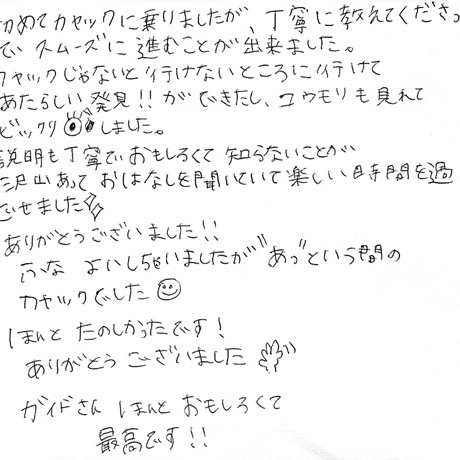 初めてカヤックに乗りましたが、丁寧に教えてくださっ
で、スムーズに進むことが出来ました。
カヤックじゃないと行けないところに行けて
あたらしい発見!!ができたし、コウモリも見れて
ビックリしました。
説明も丁寧でおもしろくて知らないことが
沢山あっておはなしを聞いていて楽しい時間を過
ごせました
ありがとうございました!!
ふな よいしちゃいましたが"あっ"という間の
カヤックでした
ほんと たのしかったです!
ありがとう ございました
ガイドさん ほんと おもしろくて
最高です!!